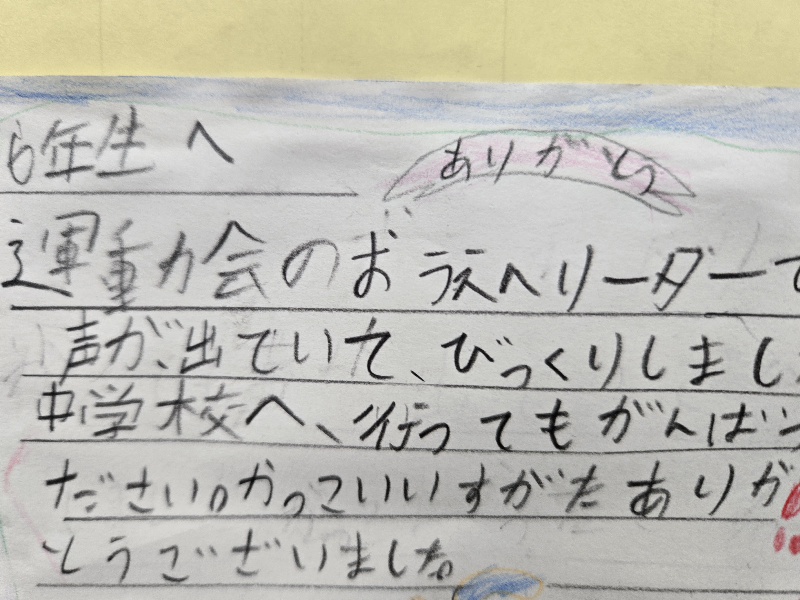 6年生へ
ありがとう
運動会のおうえんリーダーで
声が、出ていて、びっくりしまし
中学校へ、行ってもがんばっ
ださい。かっこいいすがたありが
とうございました。